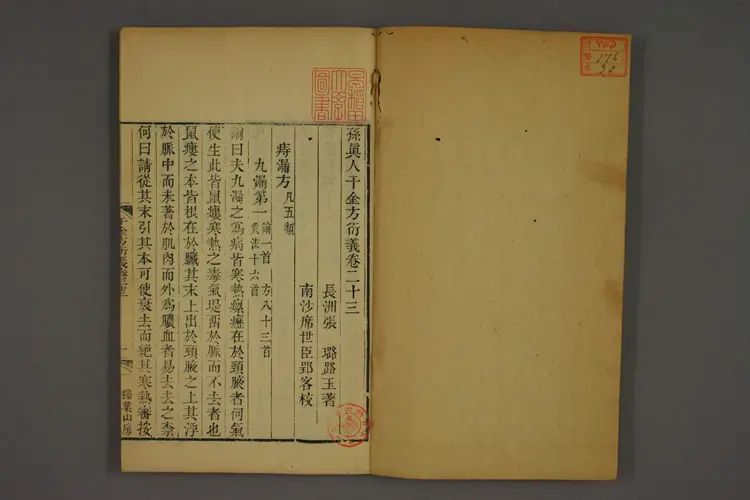 孫眞人千金方衍義卷二十三
長洲張 璐路玉著
南沙席世臣郢客校
痔漏方凡五類
九漏第一論一首 方八十三首
灸法十六首
論曰夫九漏之爲病皆寒熱瘰癧在於頸腋者何氣
使生此皆鼠瘻寒熱之毒氣堤畱於脈而不去者也
鼠瘻之本皆根在於臟其末上出於頸腋之上其浮
於脈中而未著於肌肉而外爲膿血者易去去之柰
何曰請從其末引其本可使衰去而絕其寒熱審按
千金方衍義卷二十三
一
掃葉山房
176
30